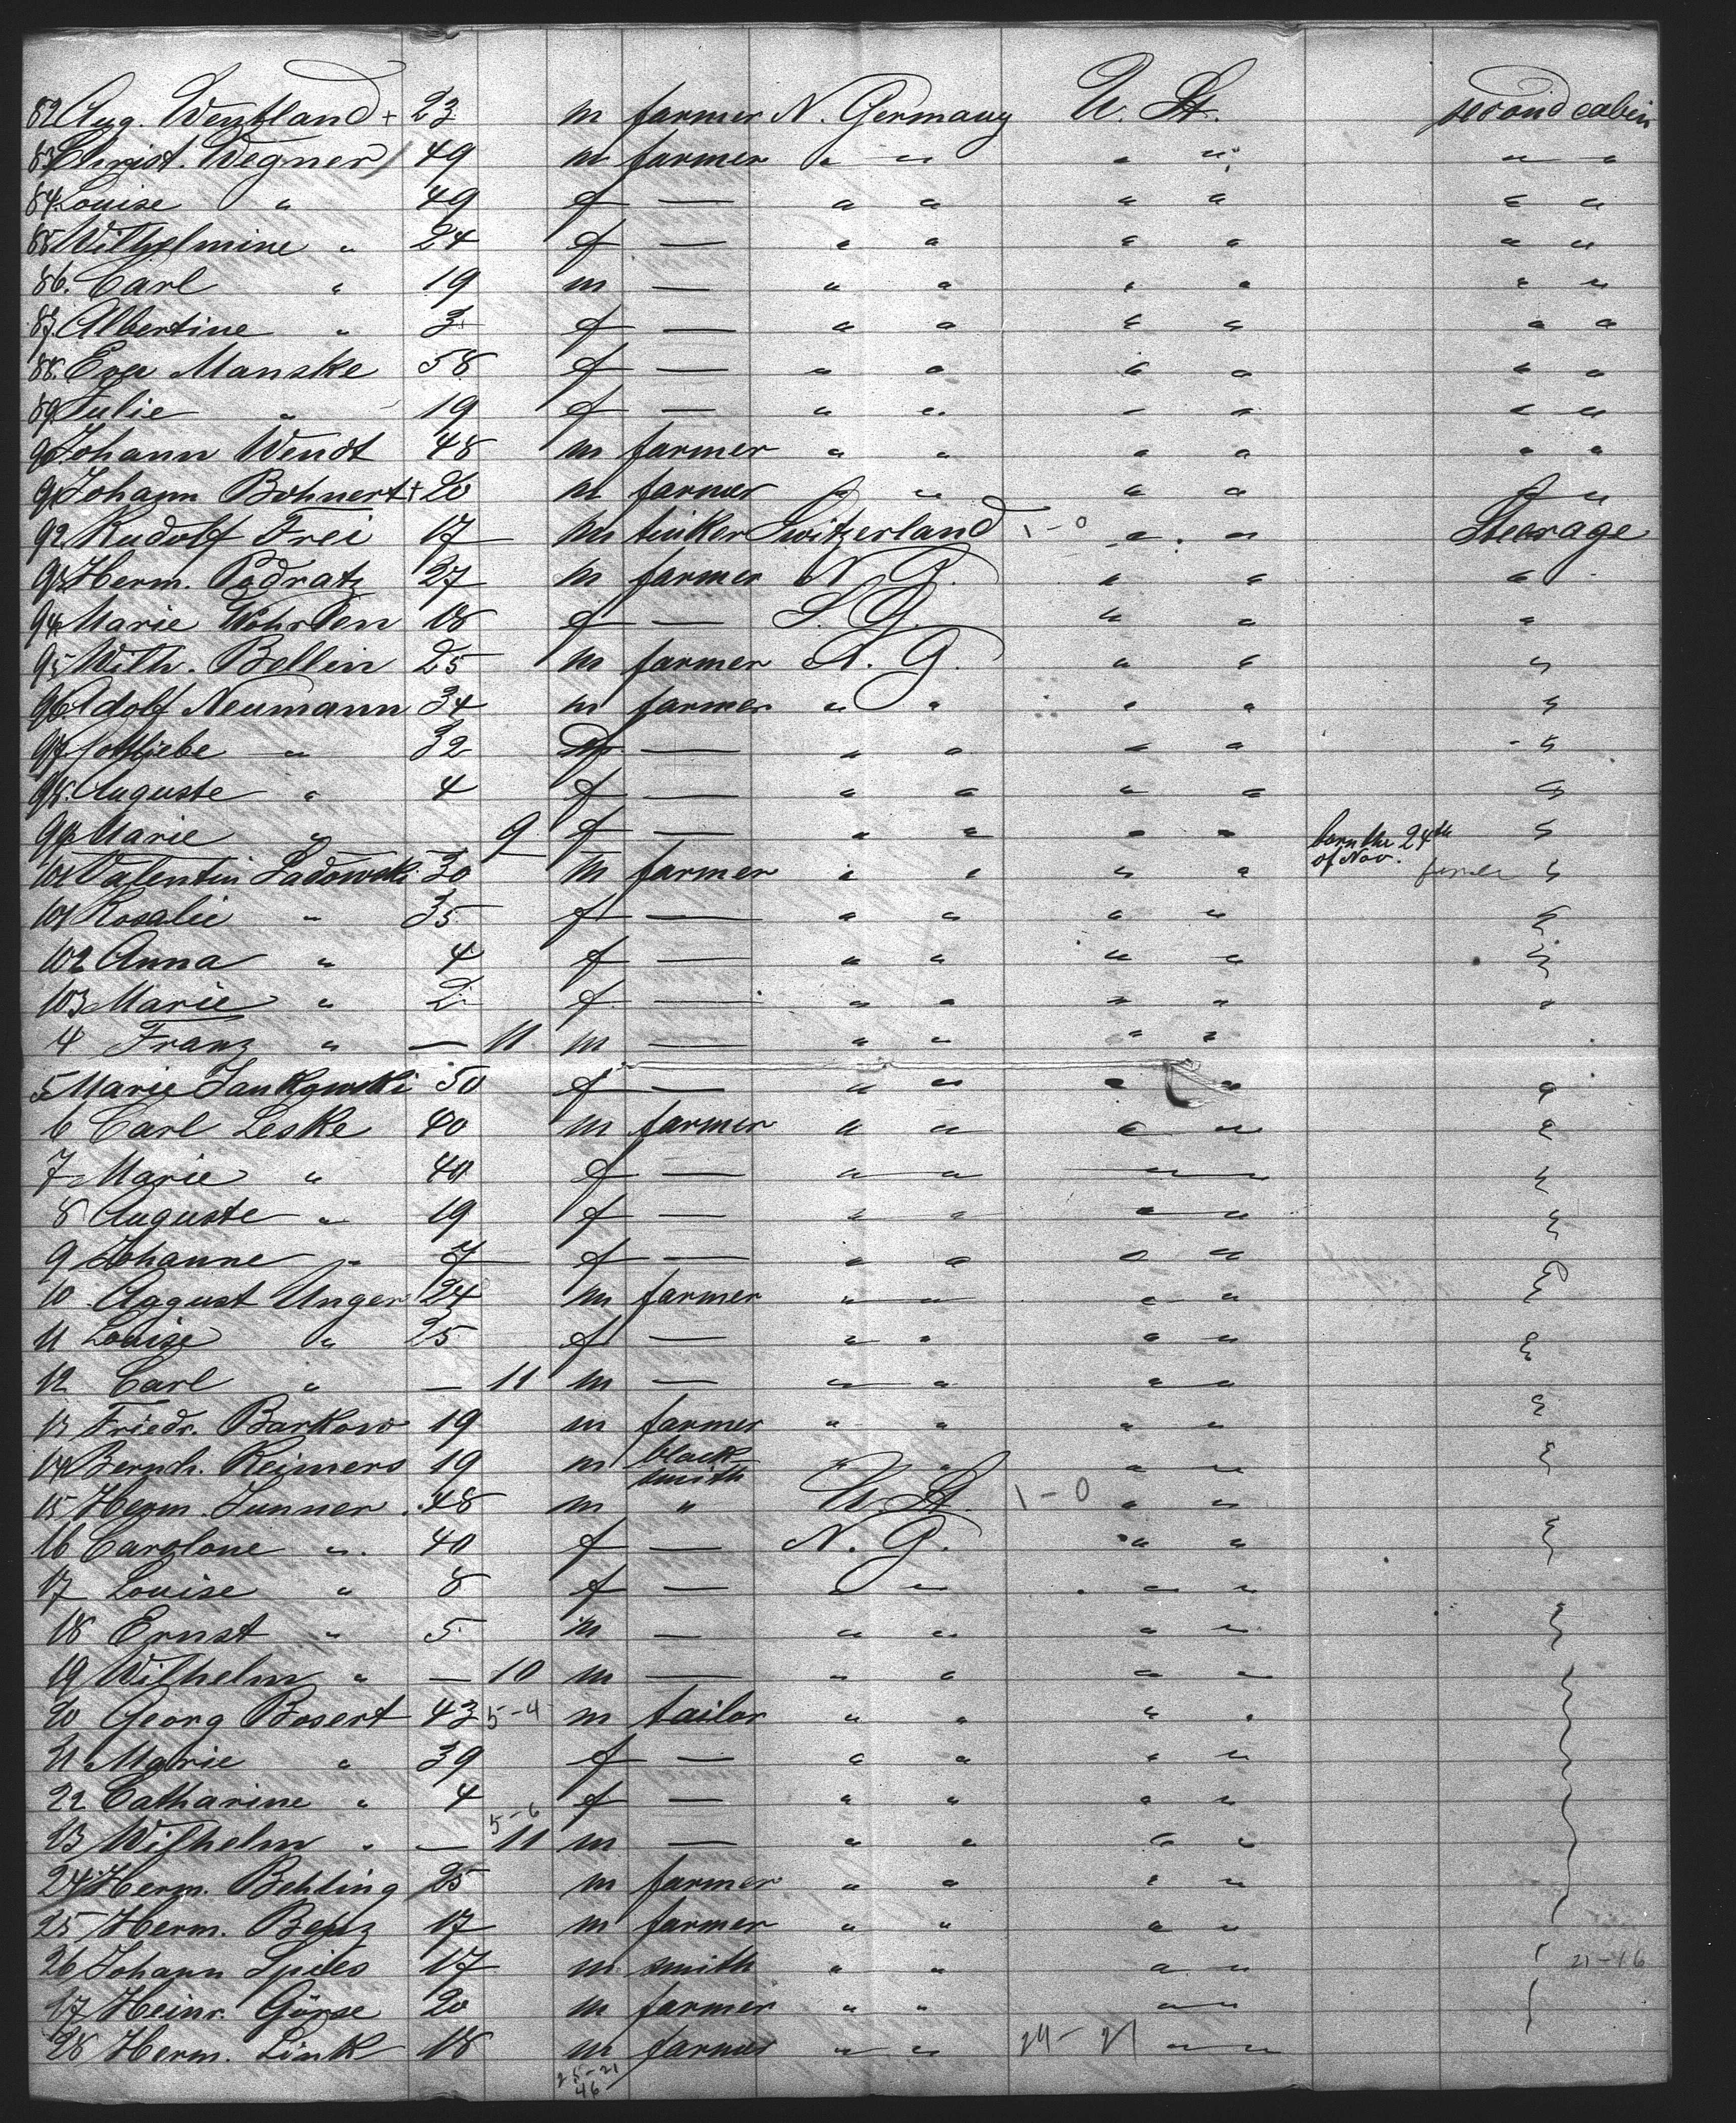 82 Aug. Wentland + 23 m farmer N. Germany U. St. second cabin
83 Christ. Wegner 49 m farmer " " " " " "
84 Louise " 49 f — " " " " " "
85 Wilhelmine " 24 f — " " " " " "
86. Carl " 19 m — " " " " " "
87. Albertine " 3 f — " " " " " "
88. Eva Manske 58 f — " " " " " "
89 Julie " 19 f — " " " " " "
90 Johann Wendt 48 m farmer " " " " " "
91 Johann Bohnert + 20 m farmer " " " " " "
92 Rudolf Frei 17 m tinker Switzerland 1-0 " " Steerage
93 Herm. Podratz 27 m farmer N. G. " " "
94 Marie Wohrden 18 f — S. G. " " "
95 Wilh. Bellin 25 m farmer N. G. " " "
96 Adolf Neumann 34 m farmer " " " " "
97 Gottliebe " 32 f — " " " " "
98. Auguste " 4 f — " " " " "
99 Marie " 9 f — " " " " born the 24th of Nov. "
100 Valentin Ladowski 30 m farmer " " " " "
101 Rosalie " 35 f — " " " " "
102 Anna " 4 f — " " " " "
103 Marie " 2 f — " " " " "
4 Franz " — 11 m — " " " "
5 Marie Jankowski 50 f — " " " " "
6 Carl Leske 40 m farmer " " " " "
7 Marie " 40 f — " " " " "
8 Auguste " 19 f — " " " " "
9 Johanne " 7 f — " " " " "
10 August Unger 24 m farmer " " " " "
11 Louise " 25 f — " " " " "
12 Carl " — 11 m — " " " "
13 Friedr. Barkow 19 m farmer " " " " "
14 Bernh. Reimers 19 m blacksmith " " " " "
15 Herm. Lunner 48 m " U. St. 1-0 " "
16 Carolone " 40 f — N. G. " " "
17 Louise " 8 f — " " " "
18 Ernst " 5 m — " " " " "
19 Wilhelm " — 10 m — " " " "
20 Georg Bosert 43 5-4 m tailor " " " "
21 Marie " 39 f — " " " "
22 Catharine " 4 f — " " " "
23 Wilhelm " — 5-6 11 m — " " " "
24 Herm. Behling 25 m farmer " " " "
25 Herm. Benz 17 m farmer " " " "
26 Johann Spiles 17 m smith " " " " 21-46
27 Heinr. Görse 20 m farmer " " " "
28 Herm. Link 18 m farmer " " 24-21 " "
25-21
46